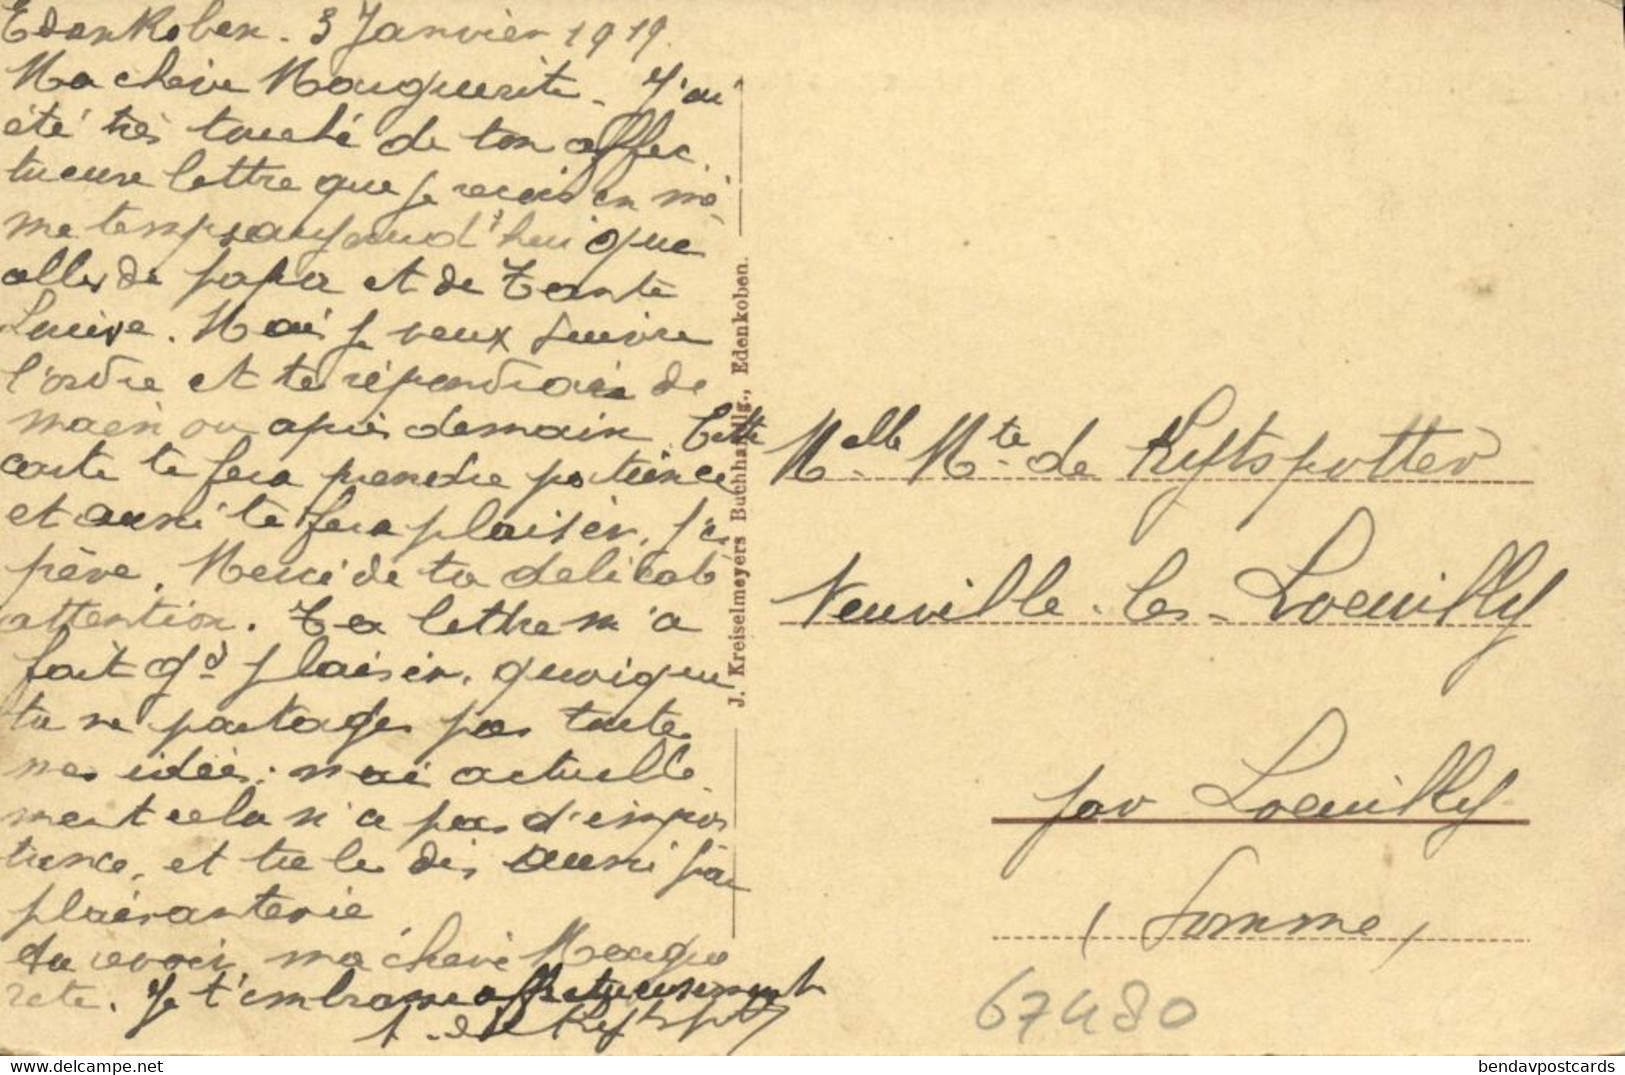 Edenkoben. 3 Janvier 1919.
Ma chère Marguerite. J'ai
été très touché de ton affec
tueuse lettre que je reçois en mê
me temps aujourd'hui que
celles de papa et de Tante
Louise. Mais je veux suivre
l'ordre et te répondrai de
main ou après demain. Cette
carte te fera prendre patience
et aussi te fera plaisir, j'es
père. Merci de ta délicate
attention. Ta lettre m'a
fait gd plaisir, quoique
tu ne partages pas toutes
mes idées; mais actuelle
ment cela n'a pas d'impor
tance, et tu le dis aussi par
plaisanterie
Au revoir ma chère Margue
rite. Je t'embrasse affectueusement
J. Kreiselmeyers Buchhandlg., Edenkoben.
Melle Mte de Ryltspotter
Neuville-les-Loeuilly
par Loeuilly
(Somme)
67480
bendavpostcards